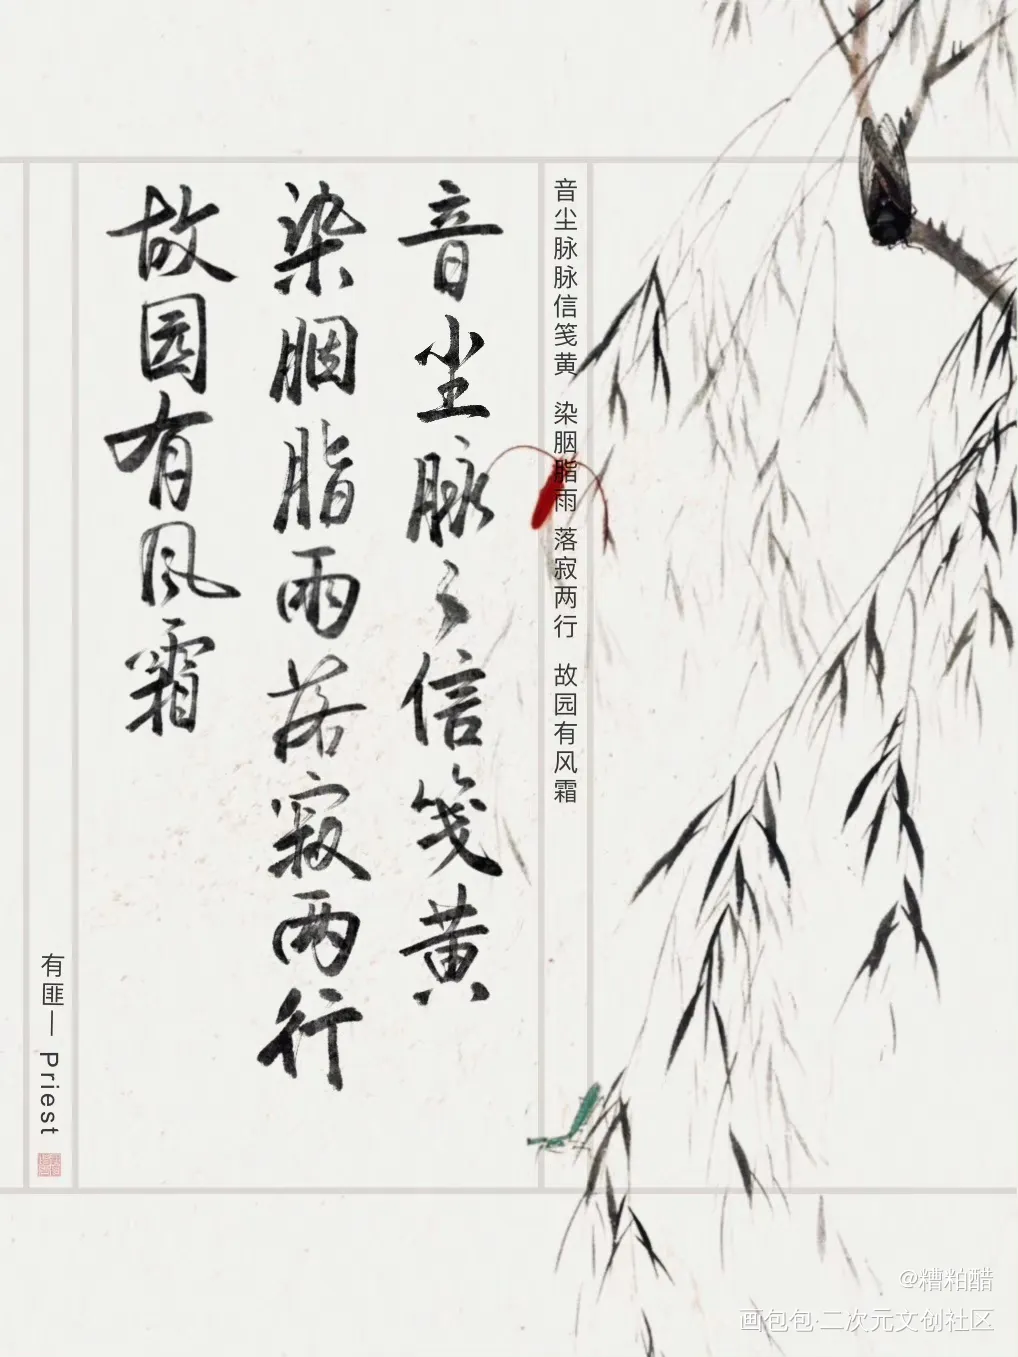 音尘脉脉信笺黄 染胭脂雨 落寂两行 故园有风霜
音尘脉〻信笺黄
染胭脂雨落寂两行
故园有风霜
有匪— Priest
@糟粕醋
画包包·二次元文创社区